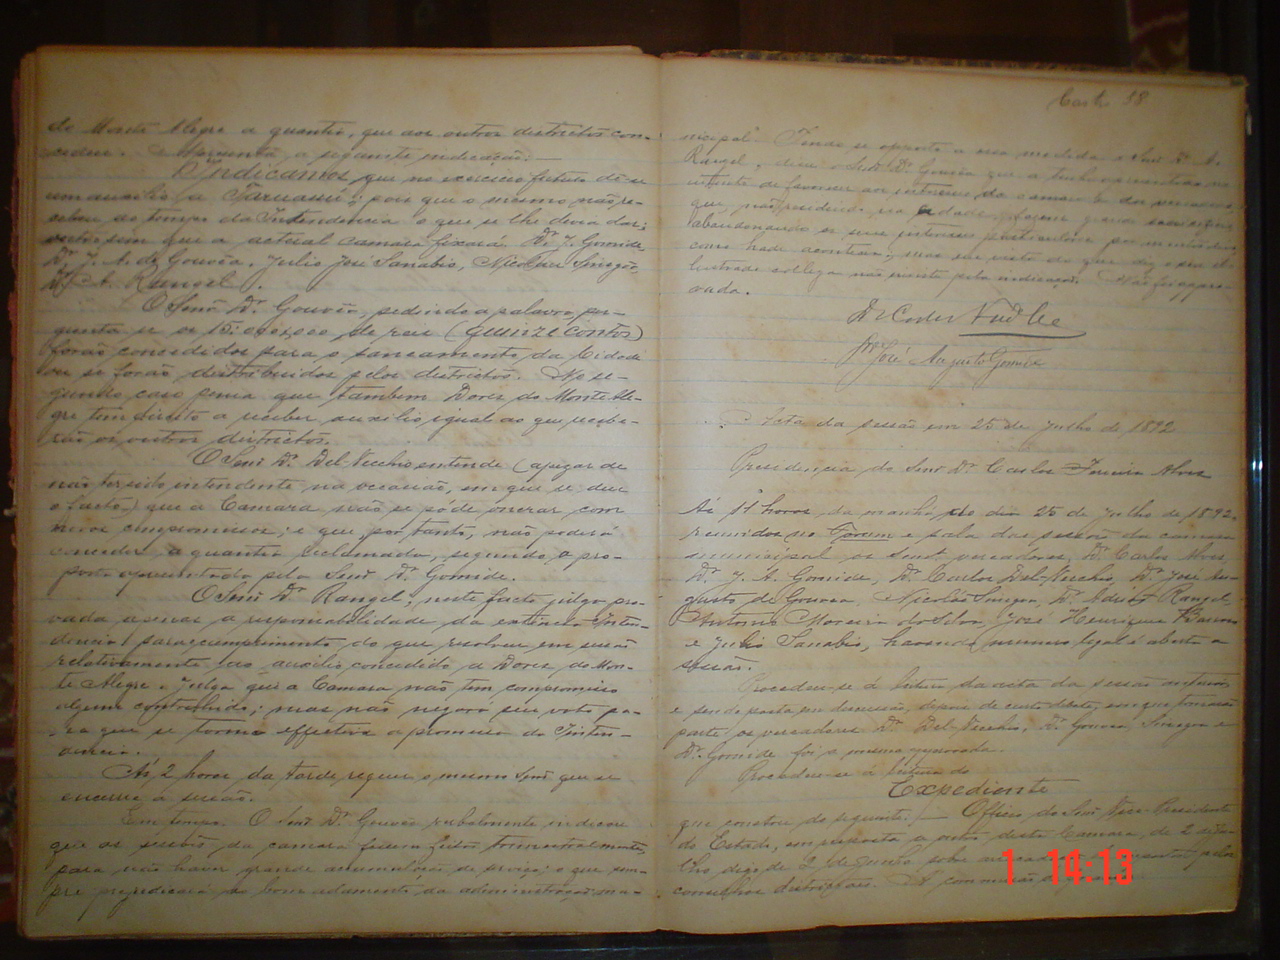 do Monte Alegre a quantia, que aos outros districtos con-
cedeu. Apresenta a seguinte indicação:—
Indicamos que no exercicio futuro dê-se
um auxilio a Taruassú, pois que o mesmo não re-
cebeu ao tempo da Intendencia o que se lhe devia dar;
outro sim que a actual camara fixará. Dr. J. Gomide
Dr. J. A. de Gouvêa. Julio José Sanabio, Nicolau
A. Rangel.
O Senr Dr. Gouvêa, pedindo a palavra, per-
gunta se os 15:000,000 de reis (quinze contos)
forão concedidos para o saneamento da Cidade
ou se forão distribuidos pelos districtos. No se-
gundo caso pensa que tambem Dores do Monte Ale-
gre tem direito a receber auxilio igual ao que recebe-
rão os outros districtos.
O Senr Dr. Del-Vecchio entende (apezar de
não ter sido intendente na occasião, em que se deu
o facto) que a Camara não se póde onerar com
novos compromissos; e que, por tanto, não poderá
conceder a quantia reclamada, segundo a pro-
posta apresentada pelo Senr Dr. Gomide.
O Senr Dr. Rangel, neste facto julga pro-
vada a responsabilidade da extincta Inten-
dencia para cumprimento do que resolveu em sessão
relativamente ao auxilio concedido a Dores do Mon-
te Alegre e julga que a Camara não tem compromisso
algum contrahido; mas não negará seu voto pa-
ra que se torne effectiva a promessa da Inten-
dencia.
Ás 2 horas da tarde requer o mesmo Senr que se
encerre a sessão.
Em tempo. O Senr Dr. Gouvêa verbalmente indicou
que as sessões da camara fossem feitas trimensalmente,
para não haver grande accumulação de serviço; o que sem-
pre prejudicará o bom andamento da administração mu-
nicipal. Tendo se opposto a essa medida o Senr Dr. A.
Rangel, disse o Senr Dr. Gouvêa que a tinha apresentado no
intuito de favorecer aos interesses da camara e dos vereadores
que, não residindo na cidade, fazem grave sacrificio
abandonando os seus interesses particulares
como hade acontecer; mas em vista do que diz o seu il-
lustrado collega não insiste pela indicação. Não foi appro-
vada.
Dr José Augusto Gomide
Acta da sessão em 25 de Julho de 1892
Presidencia do Senr Dr Carlos Ferreira Alves
Ás 11 horas da manhã do dia 25 de Julho de 1892,
reunidos no Forum e sala das sessões da camara
municipal os Senrs vereadores, Dr. Carlos Alves,
Dr. J. A. Gomide, Dr. Carlos Del-Vecchio, Dr. José Au-
gusto de Gouvea, Nicolau, Dr. Rangel,
Antonio Moreira da Silva, José Henrique
e Julio Sanabio, havendo numero legal é aberta a
sessão.
Procedeu-se á leitura da acta da sessão anterior
e sendo posta em discussão, depois de curto debate, em que tomarão
parte os vereadores Dr. Del-Vecchio, Dr. Gouvea, e
Dr. Gomide foi a mesma approvada.
Procedeu-se á leitura do
Expediente
que constou do seguinte:— Officio do Senr Vice-Presidente
do Estado, em resposta a outro desta Camara, de 2 de Ju-
lho digo de 2 de Junho sobre
conselhos districtaes. Á commissão
1 14:13